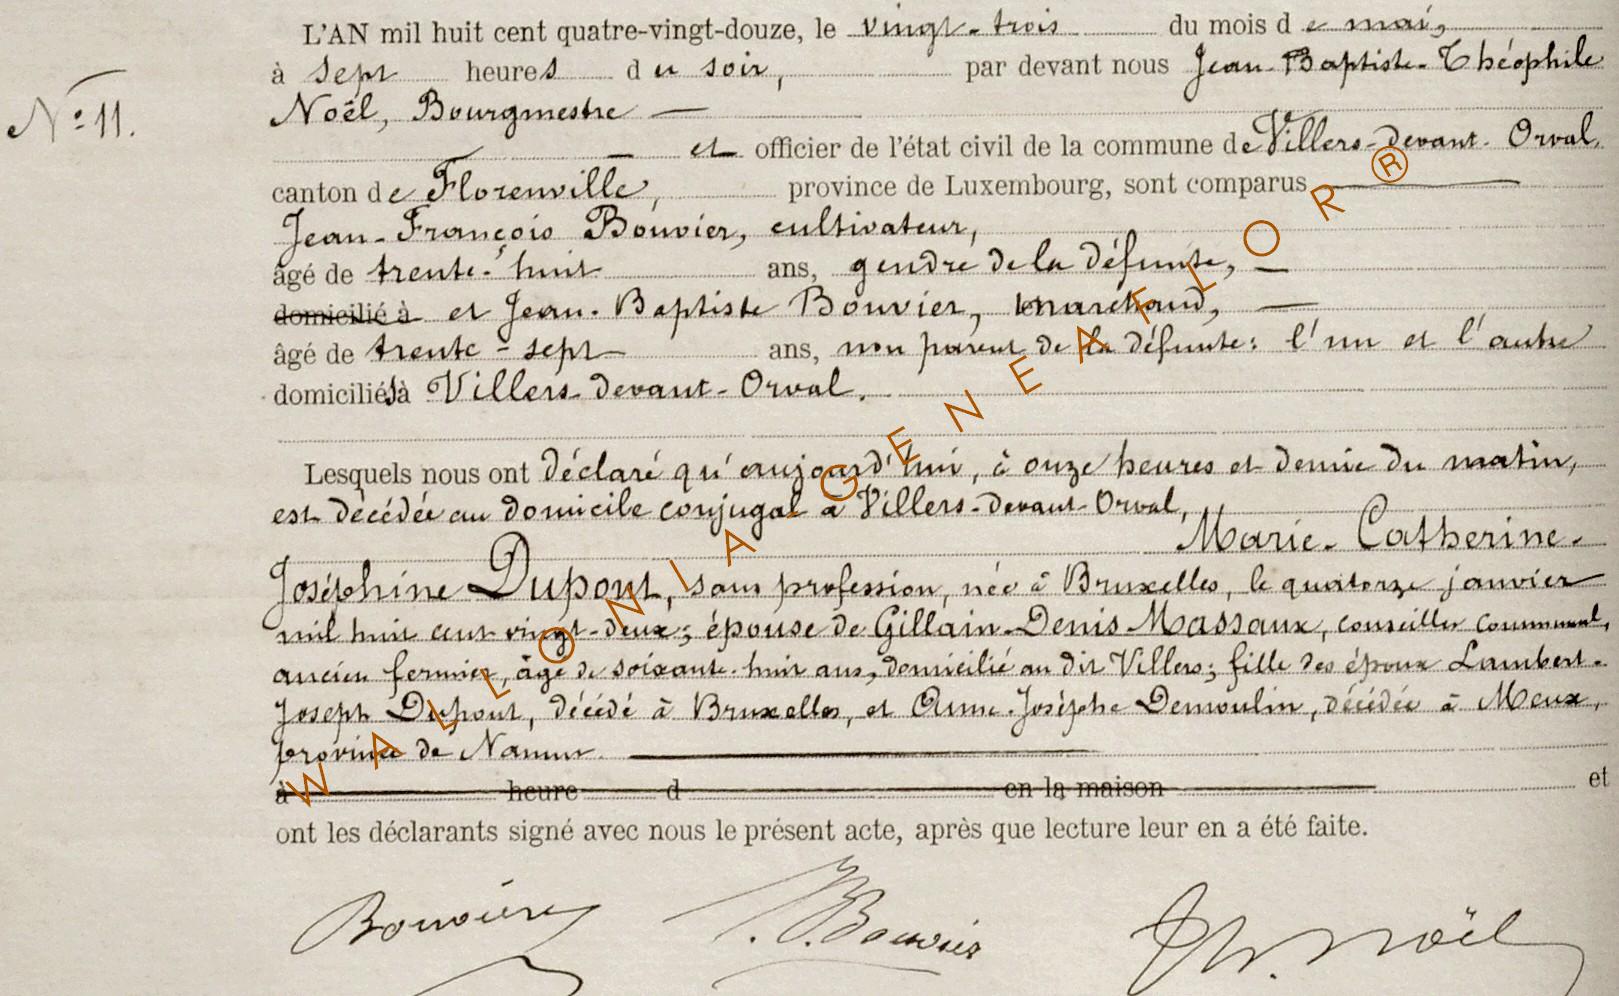 L'AN mil huit cent quatre-vingt-douze, le vingt-trois du mois de mai,
à sept heures du soir, par devant nous Jean-Baptiste-Théophile
N° 11.
Noël, Bourgmestre —
— et officier de l'état civil de la commune de Villers-devant-Orval,
canton de Florenville, province de Luxembourg, sont comparus
Jean-François Bouvier, cultivateur,
âgé de trente-huit ans, gendre de la défunte, —
domicilié à et Jean-Baptiste Bouvier, marchand, —
âgé de trente-sept ans, non parent de la défunte: l'un et l'autre
domiciliés à Villers-devant-Orval.
Lesquels nous ont déclaré qu'aujourd'hui, à onze heures et demie du matin,
est décédée au domicile conjugal à Villers-devant-Orval,
Marie-Catherine-
Joséphine Dupont, sans profession, née à Bruxelles, le quatorze janvier
mil huit cent vingt-deux; épouse de Gillain-Denis Massaux, conseiller communal,
ancien fermier, âgé de soixante-huit ans, domicilié au dit Villers; fille des époux Lambert-
Joseph Dupont, décédé à Bruxelles, et Anne-Josèphe Demoulin, décédée à Meux,
province de Namur.
à heure d en la maison et
ont les déclarants signé avec nous le présent acte, après que lecture leur en a été faite.
Bouvier J.B. Bouvier Th. Noël
WALLONIA GENEAFLOR ®